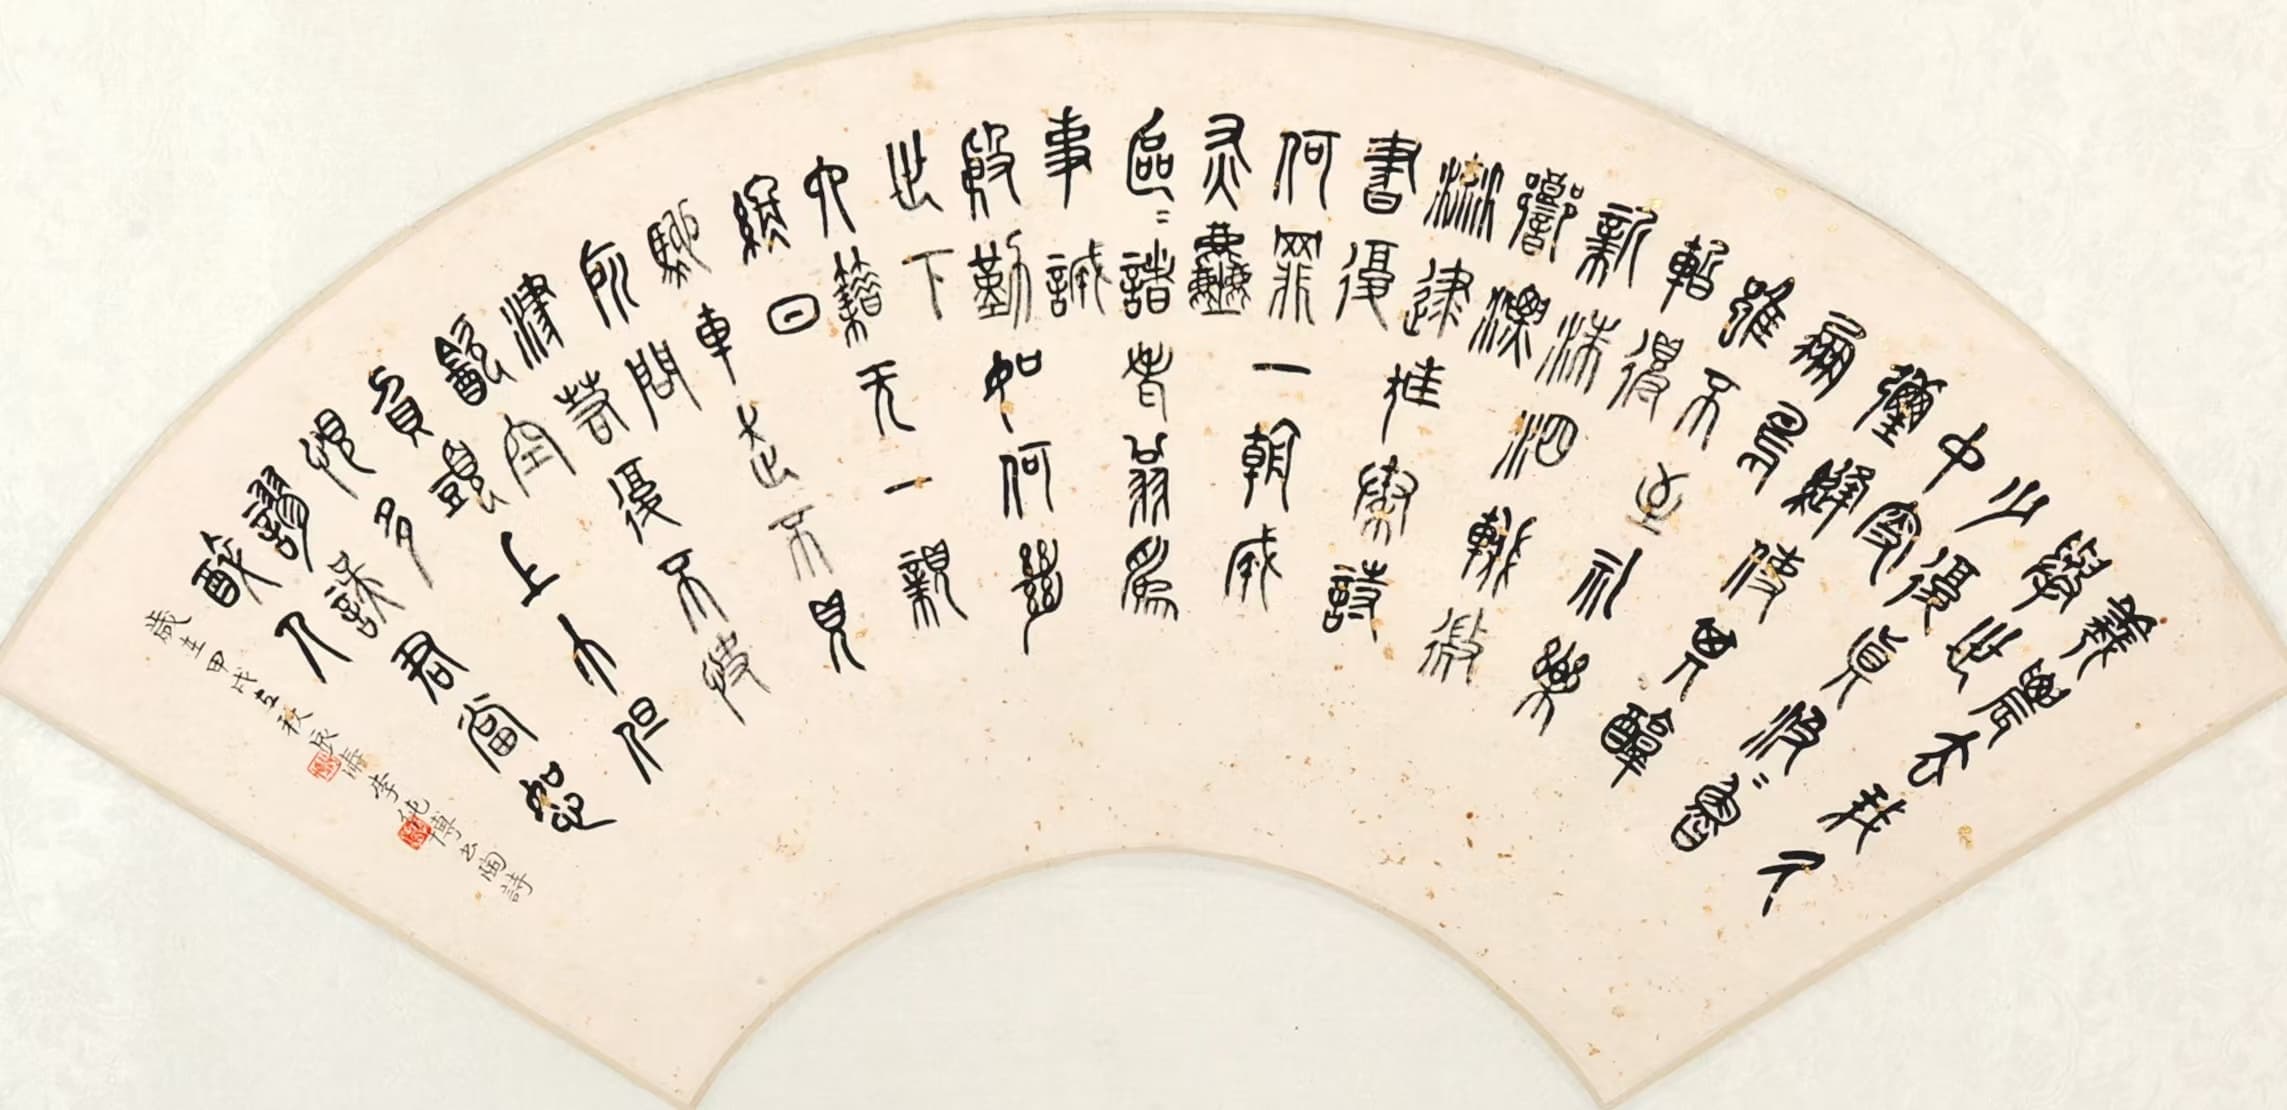 羲農去我久
舉世
少復真汲汲魯
中叟
彌縫使其淳
鳳鳥
雖不至禮樂
暫得
新洙泗輟微
響漂
流逮狂秦詩
書復
何罪一朝成
灰塵
區區諸老翁為
事誠
殷勤如何絕
世下
六籍無一親
終日
馳車走不見
所問
津若復不快
飲空
負頭上巾但
恨多
謬誤君當恕
醉人
歲在甲戌立秋李純博書陶詩